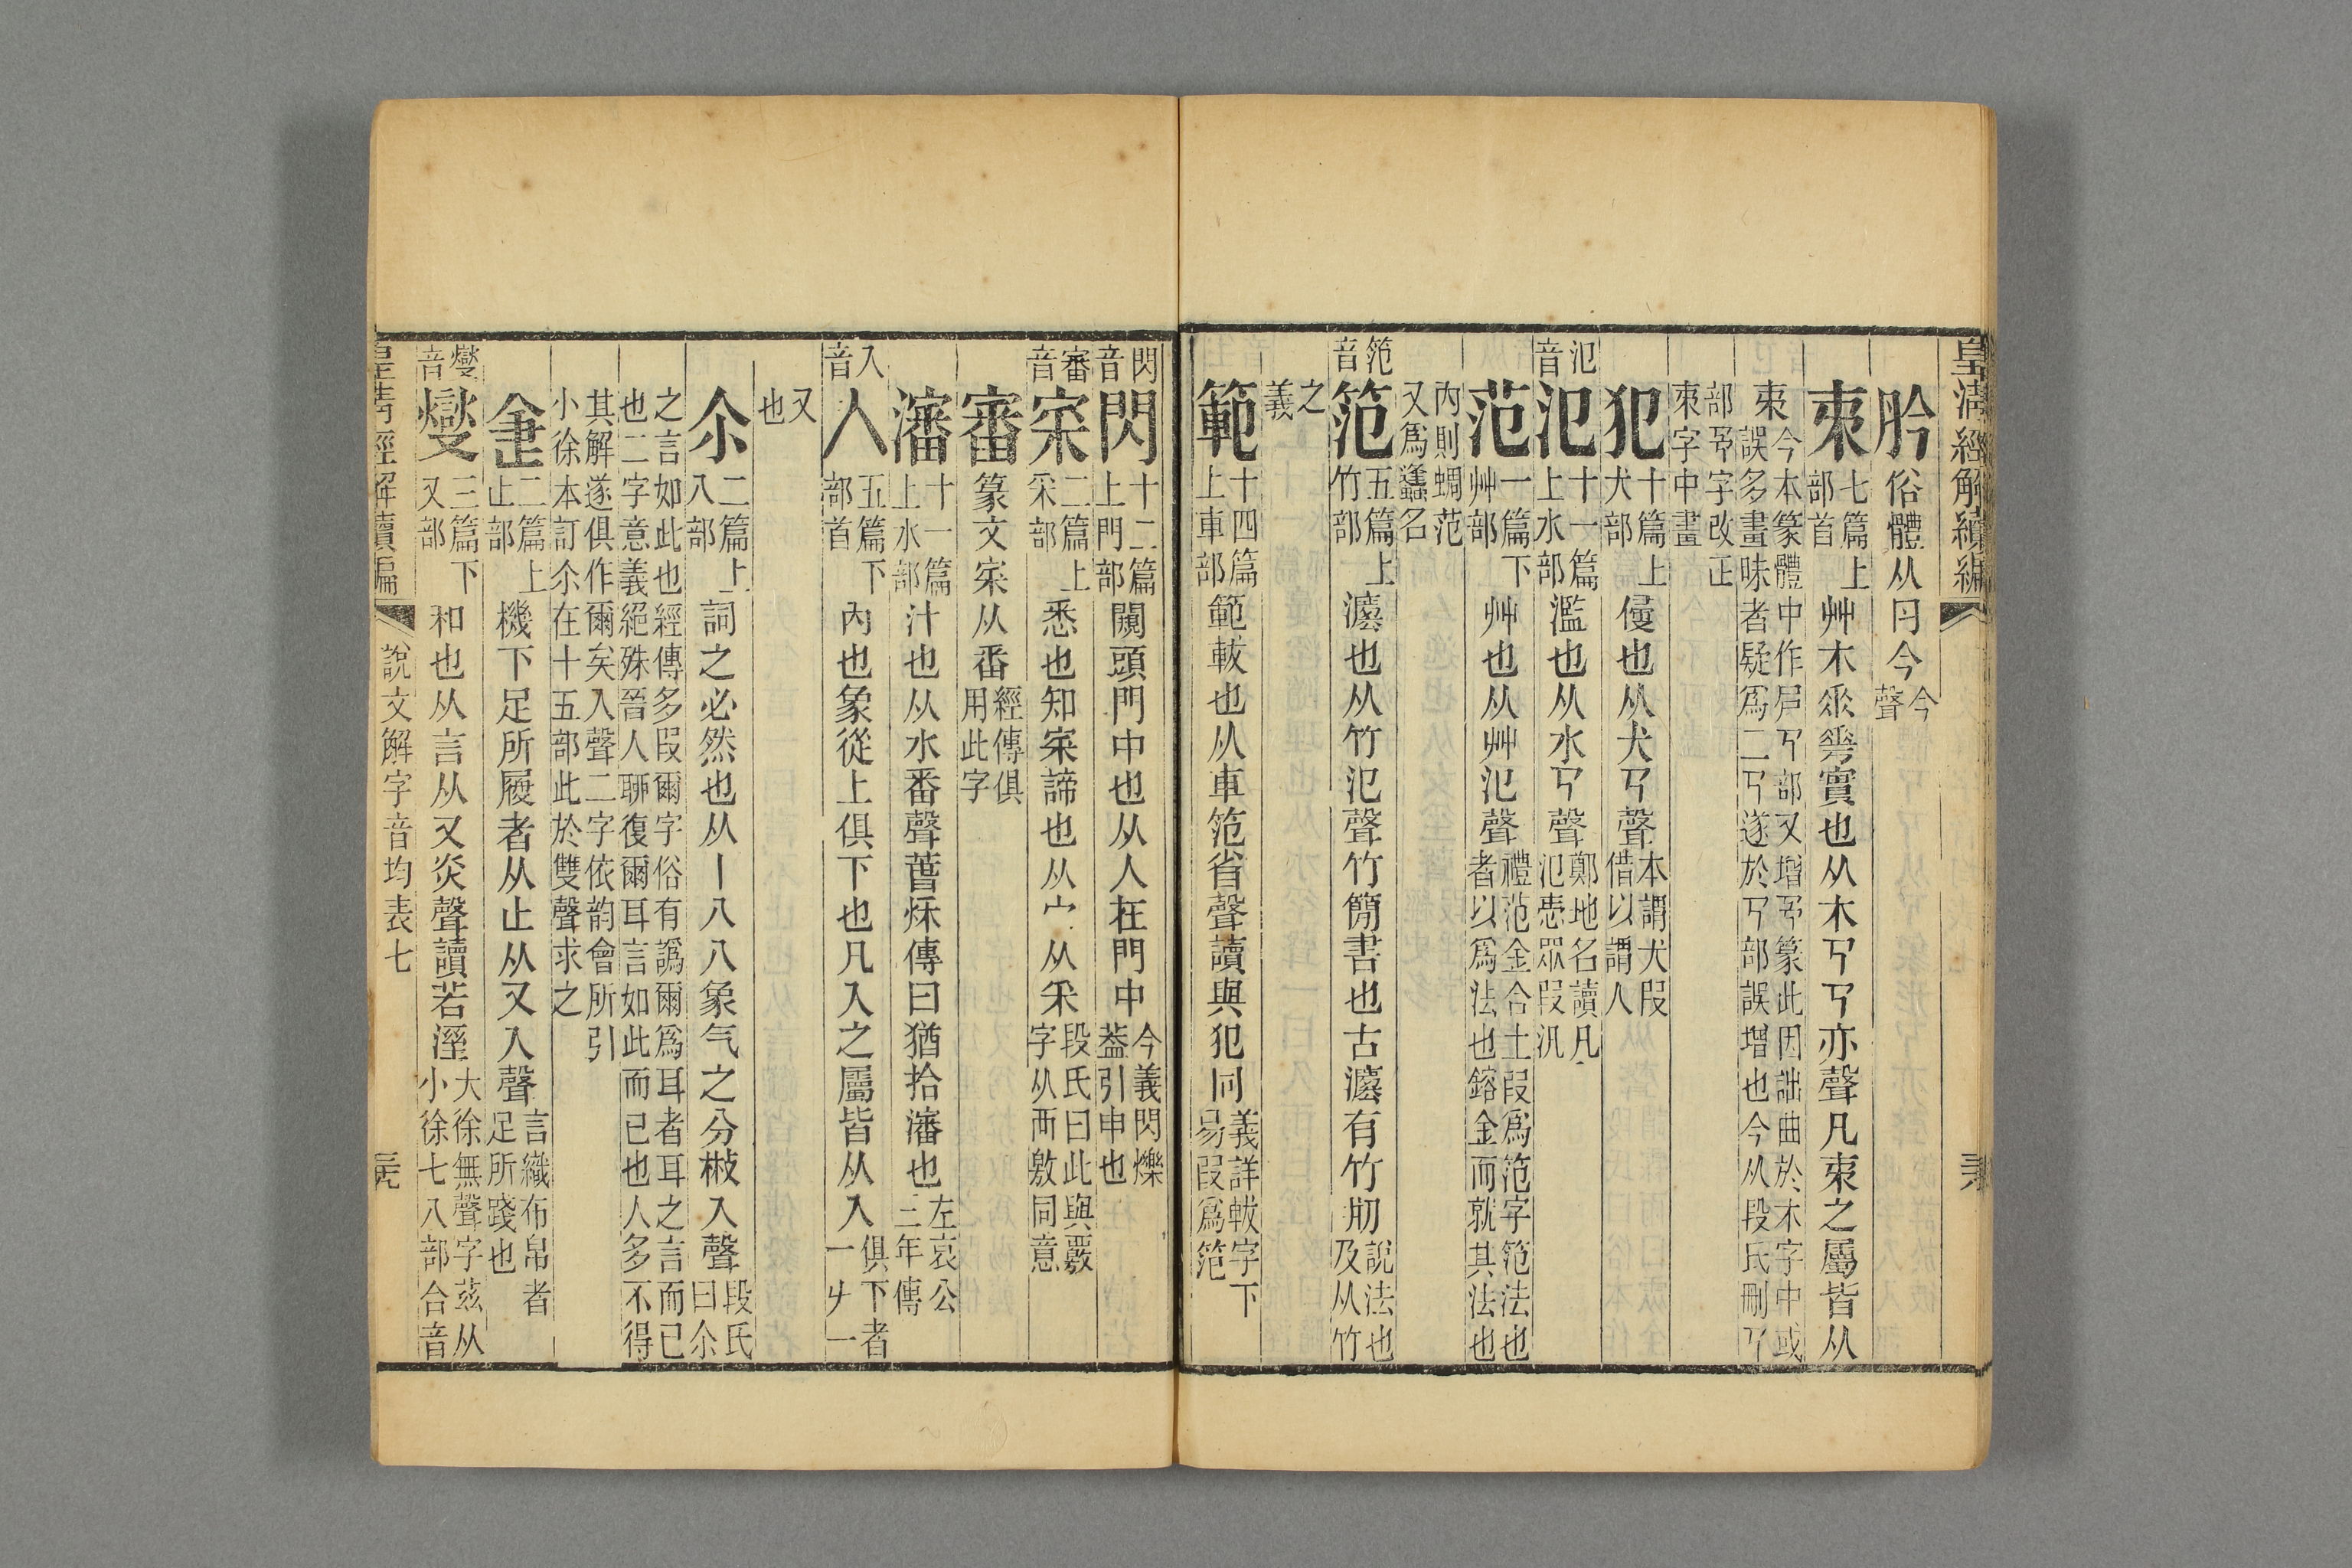 皇清經解續編
肣俗體从⺼今今聲
𣐺七篇上部首艸木𠂹𠌶實也从木㔾㔾亦聲凡𣐺之屬皆从
𣐺今本篆體中作㔾部又增篆此因詘曲於木字中或
誤多畫昧者疑爲二遂於部誤增也今从段氏刪
部字改正
𣐺字中畫
犯十篇上犬部侵也从犬㔾聲本謂犬叚借以謂人
氾音氾十一篇上水部濫也从水㔾聲鄭地名讀凡氾悉眾叚汎
范一篇下艸部艸也从艸氾聲禮范金合土叚爲范字笵法也者以爲法也鎔金而就其法也
內則蜩范
又爲䗬名
笵音笵五篇上竹部灋也从竹氾聲竹簡書也古灋有竹㓝說法也及从竹
之
義
範十四篇上車部範軷也从車笵省聲讀與犯同義詳軷字下易叚爲笵
閃音閃十二篇上門部闚頭門中也从人在門中今義閃爍蓋引申也
審音宷二篇上釆部悉也知宷諦也从宀从釆段氏曰此與覈字从襾敫同意
審篆文宷从番經傳俱用此字
瀋十一篇上水部汁也从水番聲萅秌傳曰猶拾瀋也左哀公三年傳
入音入五篇下部首內也象從上俱下也凡入之屬皆从入俱下者一屮一
又
也
尒二篇上八部詞之必然也从丨八八象气之分㪔入聲段氏曰尒
之言如此也經傳多叚爾字俗有譌爾爲耳者耳之言而已
也二字意義絕殊晉人聊復爾耳言如此而已也人多不得
其解遂俱作爾矣入聲二字依韵會所引
小徐本訂尒在十五部此於雙聲求之
疌二篇上止部機下足所履者从止从又入聲言織布帛者足所踐也
燮音燮三篇下又部和也从言从又炎聲讀若溼大徐無聲字茲从小徐七八部合音
皇清經解續編 說文解字音均表七